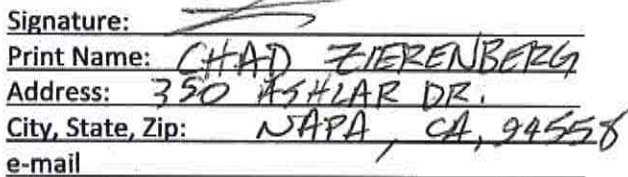 Signature:
Print Name: CHAD ZIERENBERG
Address: 350 ASHLAR DR.
City, State, Zip: NAPA, CA, 94558
e-mail